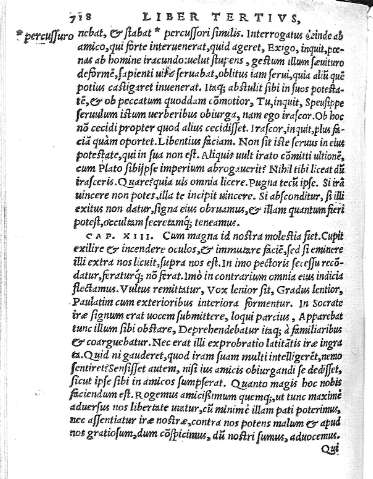 718 LIBER TERTIVS,
* percussuro nebat, & stabat * percussuri similis. Interrogatus deinde ab
amico, qui forte interuenerat, quid ageret, Exigo, inquit, pœ-
nas ab homine iracundo: uelut stupens, gestum illum sæuituro
deformẽ, sapienti uiro seruabat, oblitus iam serui, quia aliũ quẽ
potius castigaret inuenerat. Itaq; abstulit sibi in suos potestà-
tẽ, & ob peccatum quoddam cõmotior, Tu, inquit, Speusippe
seruulum istum uerberibus obiurga, nam ego irascor. Ob hoc
nõ cecidi propter quod alius cecidisset. Irascor, inquit, plus fa-
ciã quàm oportet. Libentius faciam. Non sit iste seruus in eius
potestate, qui in sua non est. Aliquis uult irato cõmitti ultionẽ,
cum Plato sibi ipse imperium abrogauerit? Nihil tibi liceat dũ
irasceris. Quare? quia uis omnia licere. Pugna tecũ ipse. Si irã
uincere non potes, illa te incipit uincere. Si absconditur, si illi
exitus non datur, signa eius obruamus, & illam quantum fieri
potest, occultam secretamq; teneamus.
CAP. XIII. Cum magna id nostra molestia fiet. Cupit
exilire & incendere oculos, & immutare faciẽ, sed si eminere
illi extra nos licuit, supra nos est. In imo pectoris secessu recõ-
datur, feraturq; nõ ferat. Imò in contrarium omnia eius indicia
flectamus. Vultus remittatur, Vox lenior sit, Gradus lentior,
Paulatim cum exterioribus interiora formentur. In Socrate
iræ signum erat uocem submittere, loqui parcius, Apparebat
tunc illum sibi obstare, Deprehendebatur itaq; à familiaribus
& coarguebatur. Nec erat illi exprobratio latitãtis iræ ingra
ta. Quid ni gauderet, quod iram suam multi intelligerẽt, nemo
sentiret? Sensisset autem, nisi ius amicis obiurgandi se dedisset,
sicut ipse sibi in amicos sumpserat. Quanto magis hoc nobis
faciendum est. Rogemus amicissimum quemq;, ut tunc maximè
aduersus nos libertate utatur, cũ minimè illam pati poterimus,
nec assentiatur iræ nostræ, contra nos potens malum & apud
nos gratiosum, dum cõspicimus, dũ nostri sumus, aduocemus.
Qui